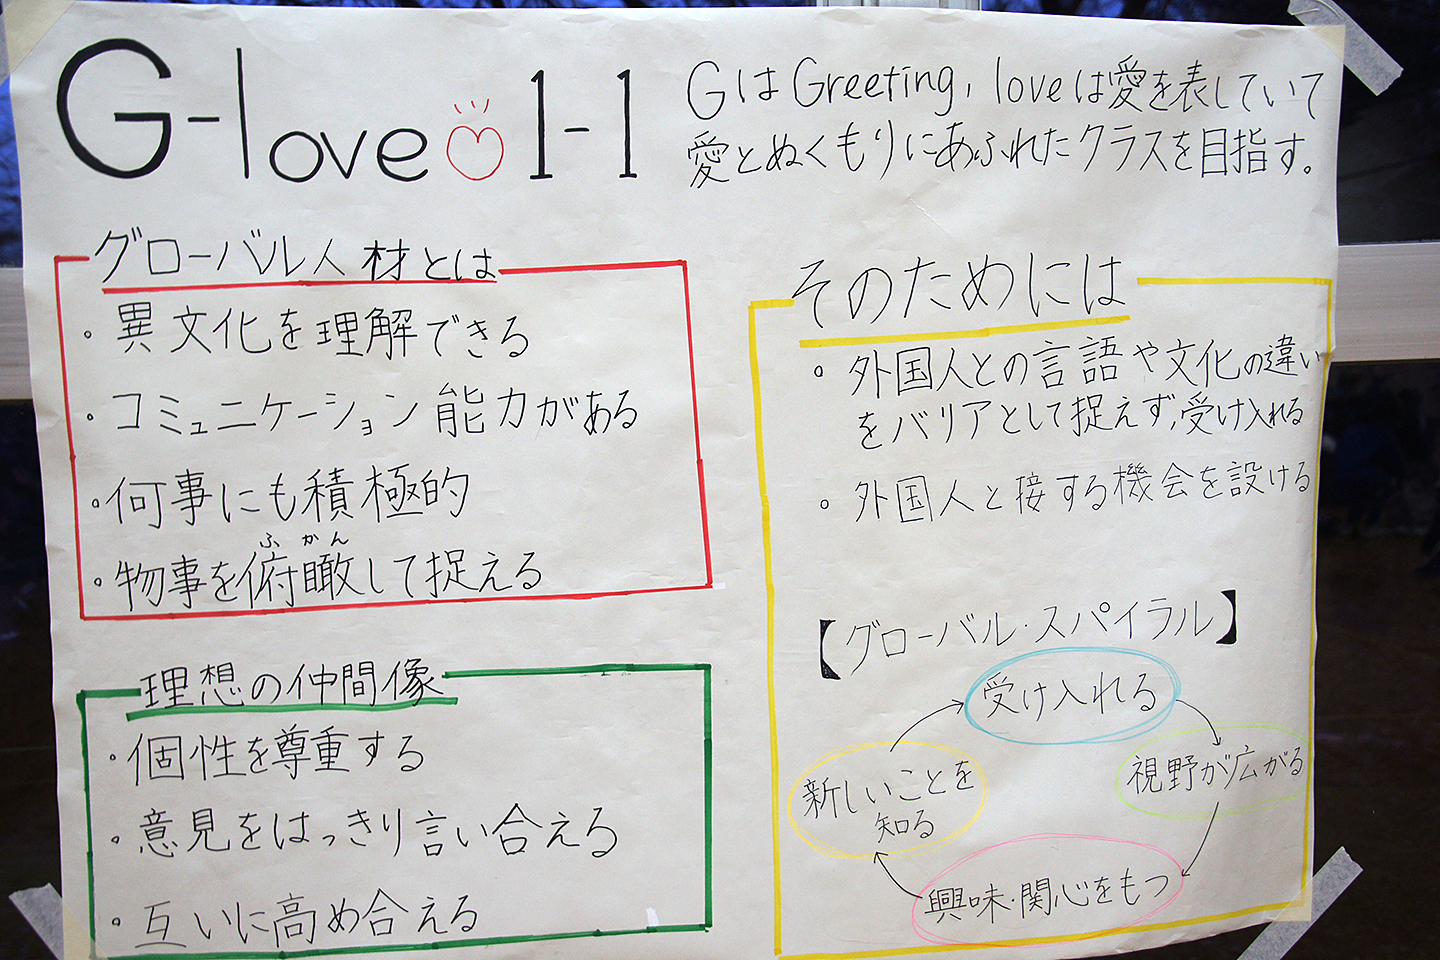 G-love 1-1
GはGreeting, loveは愛を表していて
愛とぬくもりにあふれたクラスを目指す。
グローバル人材とは
・異文化を理解できる
・コミュニケーション能力がある
・何事にも積極的
ふかん
・物事を俯瞰して捉える
理想の仲間像
・個性を尊重する
・意見をはっきり言い合える
・互いに高め合える
そのためには
・外国人との言語や文化の違い
をバリアとして捉えず、受け入れる
・外国人と接する機会を設ける
【グローバル・スパイラル】
受け入れる
視野が広がる
興味・関心をもつ
新しいことを
知る